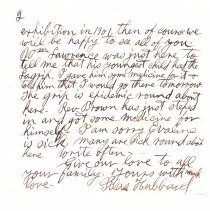 2
exhibition in 1901 then of course we
will be happy to see all of you
Mr. Lawrence was just here to
tell me that his youngest child had the
lagrip. I gave him some medicine for it &
told him that I would go there tomorrow
The grip is epidemic round about
here. Rev. Brown has just stepped
in and got some medicine for
himself. I am sorry Evaline
is sick. many are sick round about
here. Write often.
Give our love to all
your family. Yours with much
love. Silas Hubbard